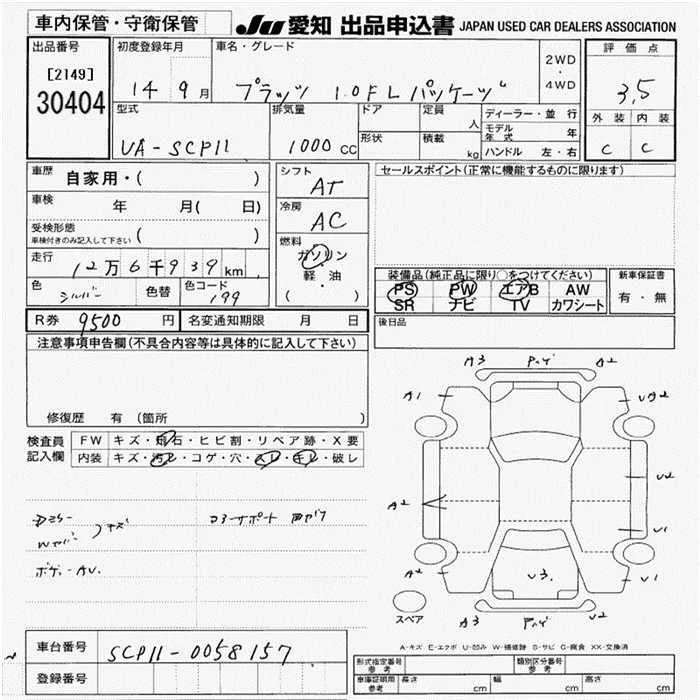 車内保管・守衛保管
JU 愛知 出品申込書 JAPAN USED CAR DEALERS ASSOCIATION
出品番号
[2149]
30404
初度登録年月
14 9月
車名・グレード
プラッツ 1.0 F L パッケージ
2WD
・
4WD
評価点
3.5
外装 内装
C C
型式
UA-SCP11
排気量
1000 CC
ドア
形状
定員
人
積載
kg
ディーラー・並行
モデル年式 年
ハンドル 左・右
車歴 自家用・( )
車検 年 月( 日)
受検形態
車検付きのみ記入して下さい ( )
走行 12万6千939km
色 シルバー 色替 色コード 199
シフト
AT
冷房
AC
燃料
ガソリン
・
軽・油
( )
セールスポイント(正常に機能するものに限ります)
装備品(純正品に限り○をつけてください)
PS PW エアB AW
SR ナビ TV カワシート
新車保証書
有・無
R券 9500 円 名変通知期限 月 日
後日品
注意事項申告欄(不具合内容等は具体的に記入して下さい)
修復歴 有 (箇所 )
検査員
記入欄
FW キズ・飛石・ヒビ割・リペア跡・X要
内装 キズ・汚レ・コゲ・穴・スレ・キレ・破レ
キズ
コアサポート
ボデー AU.
A3 A2
A1 UA2
A2 U2
U1
A2 U3. U1
A3 U2
スペア
A-キズ E-エクボ U-凹み W-補修跡 S-サビ C-腐食 XX-交換済
車台番号 SCP11-0058157
登録番号
形式指定番号
参考
類別区分番号
参考
車庫証明用
参考
長さ cm 幅 cm 高さ cm